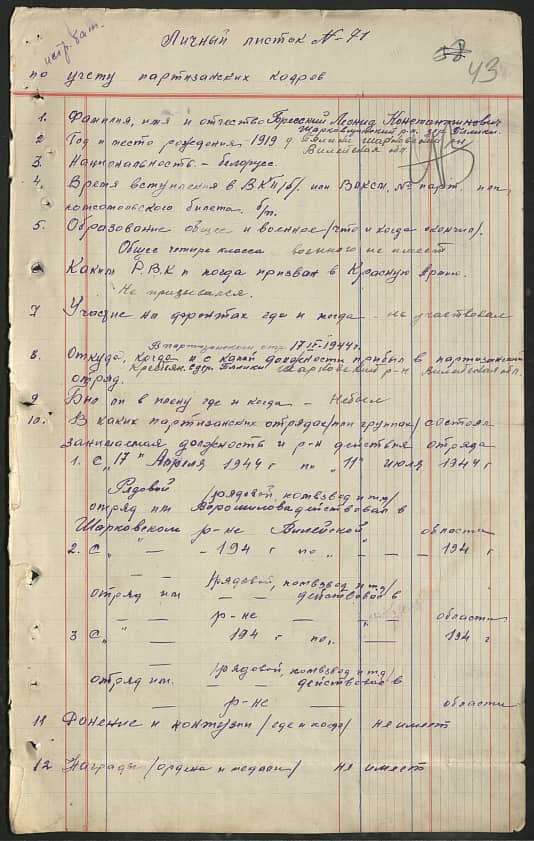 истр. бат.
Личный листок № 71
58 43
по учету партизанских кадров
1. Фамилия, имя и отчество Бресский Леонид Константинович
Шарковщинский р-н. дер. Блики.
2 Год и место рождения 1919 д. Блики Шарковский р-н
Вилейская обл.
3. Национальность – белорусс.
4. Время вступления в ВКП/б/. или ВЛКСМ, № парт. или
комсомольского билета. б/п.
5. Образование общее и военное /что и когда окончил/.
Общее четыре класса. военного не имеет
Каким Р.В.К и когда призван в Красную Армию.
Не призывался.
7 Участие на фронтах где и когда – не участвовал
В партизанском отр. 17 IV-1944 г.
8. Откуда, когда и с какой должности прибыл в партизанский
Крестьян. с дер. Блики Шарковский р-н Вилейская обл.
отряд.
9 Был ли в плену где и когда – Небыл
10. В каких партизанских отрядах/или группах/ состоял
занимаемая должность и р-н действия отряда
1. С „17" Апреля 1944 г по „11" июля 1944 г
Рядовой /рядовой, комвзвод и тд/
отряд им Ворошилова действовал в
Шарковском р-не Вилейской области
2. С „ " — 194 г по „ — — 194 г
— — /рядовой, комвзвод и тд/
отряд им — — действовал в
— — р-не — области
3 С „ " — 194 г по „ — 194 г
— /рядовой, комвзвод и тд/
отряд им. — — действовал в
— р-не — области
11 Ронение и контузии /где и когда/ не имеет
12 Награды /ордена и медали/ не имеет